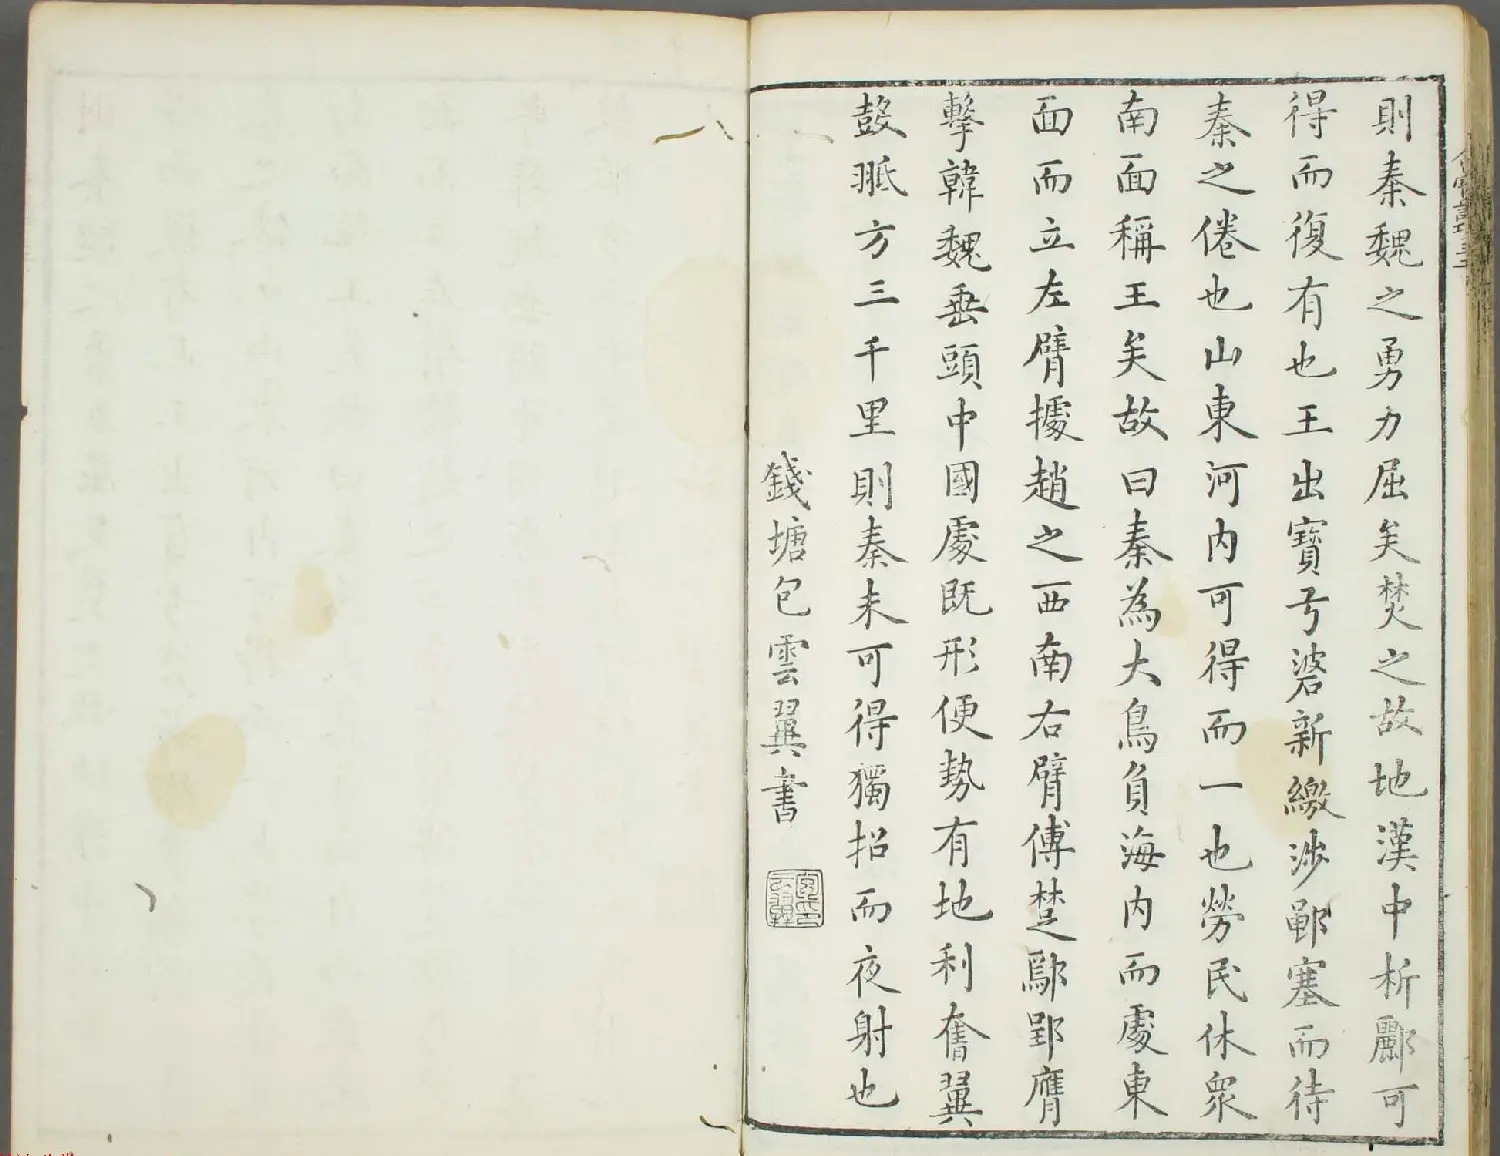 則秦魏之勇力屈矣焚之故地漢中析酈可
得而復有也王出寳弓碆新繳涉鄳塞而待
秦之倦也山東河内可得而一也勞民休衆
南面稱王矣故曰秦為大鳥負海内而處東
面而立左臂據趙之西南右臂傅楚鄢郢膺
擊韓魏垂頭中國處既形便勢有地利奮翼
鼓䎗方三千里則秦未可得獨招而夜射也
錢塘包雲翼書